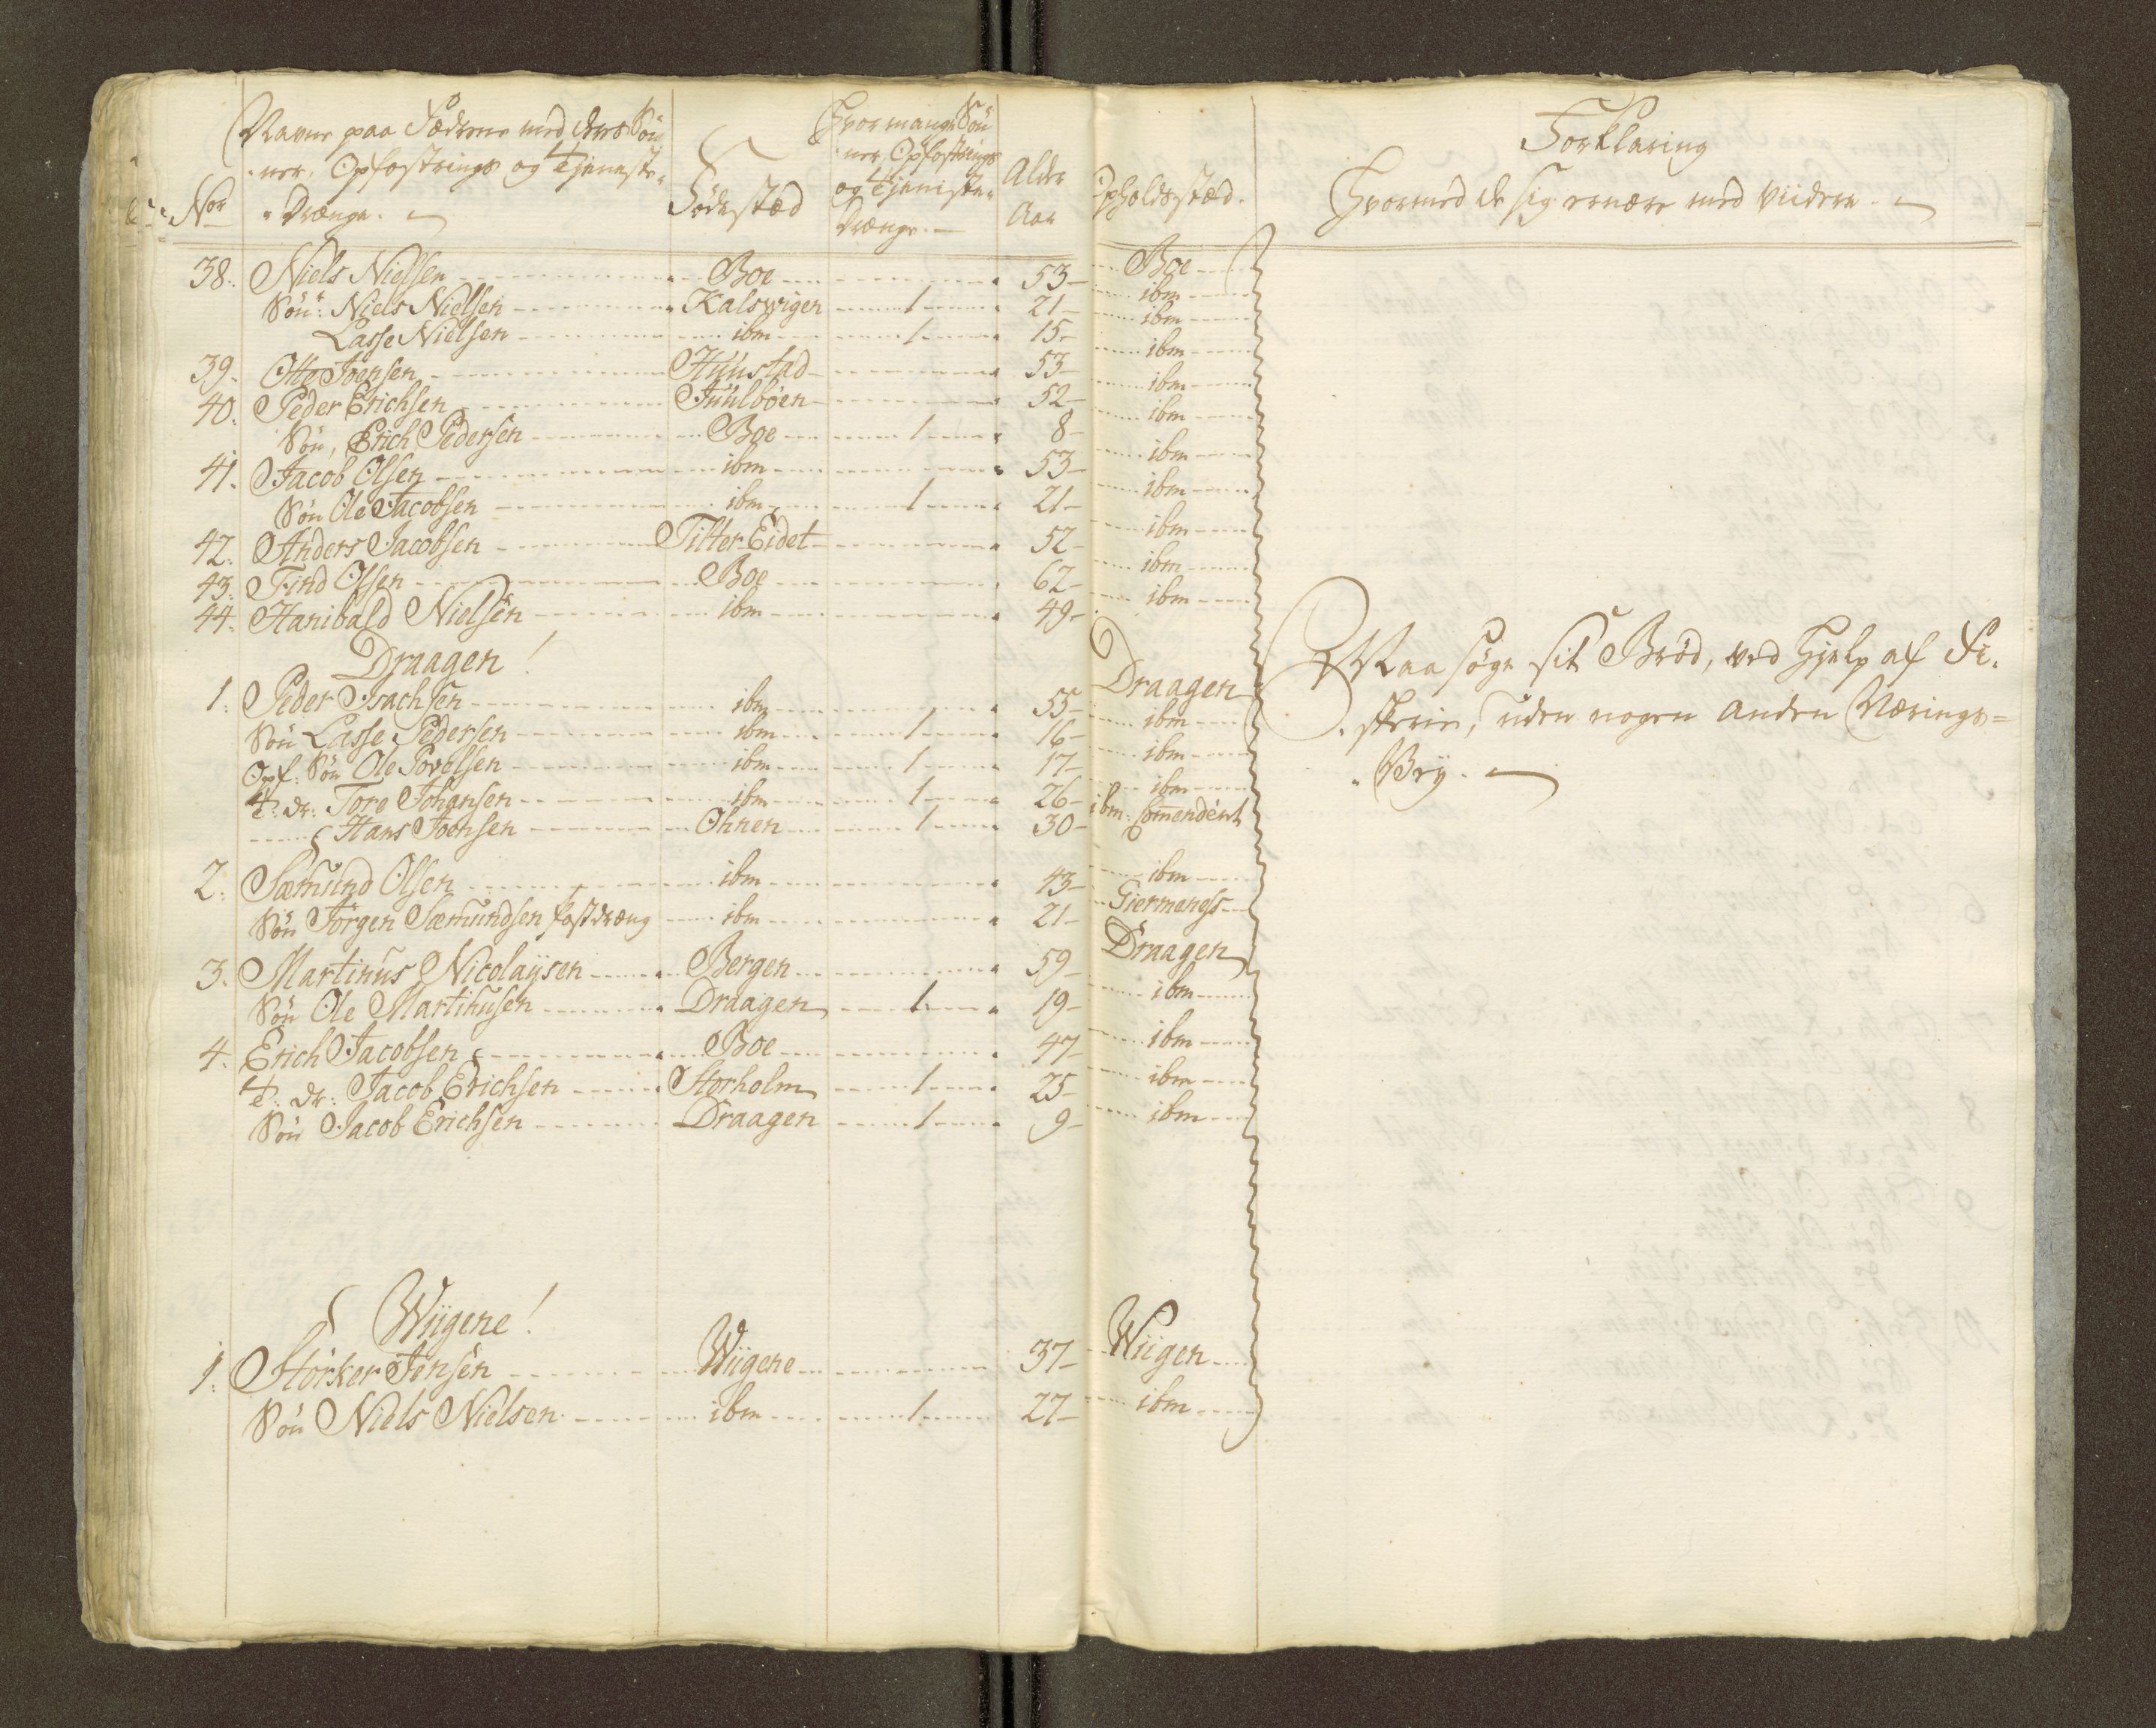 Navne paa Fædrene med deres Søn-
ner, Opfostrings og Tjeneste-
Nor Drænge.
Fødestæd
Hvor mange Søn
ner, Opfostrings
og Tjeniste-
Drænge.
Alder
Aar
Opholdsstæd.
Forklaring
Hvormed de sig ernære med viidere.
38. Niels Nielsen Boe 53 Boe
Søn: Niels Nielsen Kalsvigen 1 21 ibm
Lasse Nielsen ibm 1 15 ibm
39. Otte Joensen Huustad 53 ibm
40. Peder Erichsen Juulbøen 52 ibm
Søn, Erich Pedersen Boe 1 8 ibm
41. Jacob Olsen ibm 53 ibm
Søn Ole Jacobsen ibm 1 21 ibm
42. Anders Jacobsen Tilter-Eidet 52 ibm
43. Find Olsen Boe 62 ibm
44. Hanibald Nielsen ibm 49 ibm
Draagen!
1. Peder Isachsen ibm 55 Draagen
Søn Lasse Pedersen ibm 1 16 ibm
Opf: Søn Ole Povelsen ibm 1 17 ibm
T: dr: Tore Johansen ibm 1 26 ibm
Hans Joensen Ohnen 1 30 ibm: Comendért
2. Sæmund Olsen ibm 43 ibm
Søn Jørgen Sæmundsen fastdræng ibm 21 Giermeness
3. Martinus Nicolaysen Bergen 59 Draagen
Søn Ole Martinusen Draagen 1 19 ibm
4. Erich Jacobsen Boe 47 ibm
T: dr: Jacob Erichsen Storholm 1 25 ibm
Søn Jacob Erichsen Draagen 1 9 ibm
Maa søge sit Brød, ved Hjelp af Fi-
skerie, uden nogen anden Nærings=
Brÿ.
Wiigene!
1. Storker Jensen Wiigene 37 Wiigen
Søn Niels Nielsen ibm 1 27 ibm